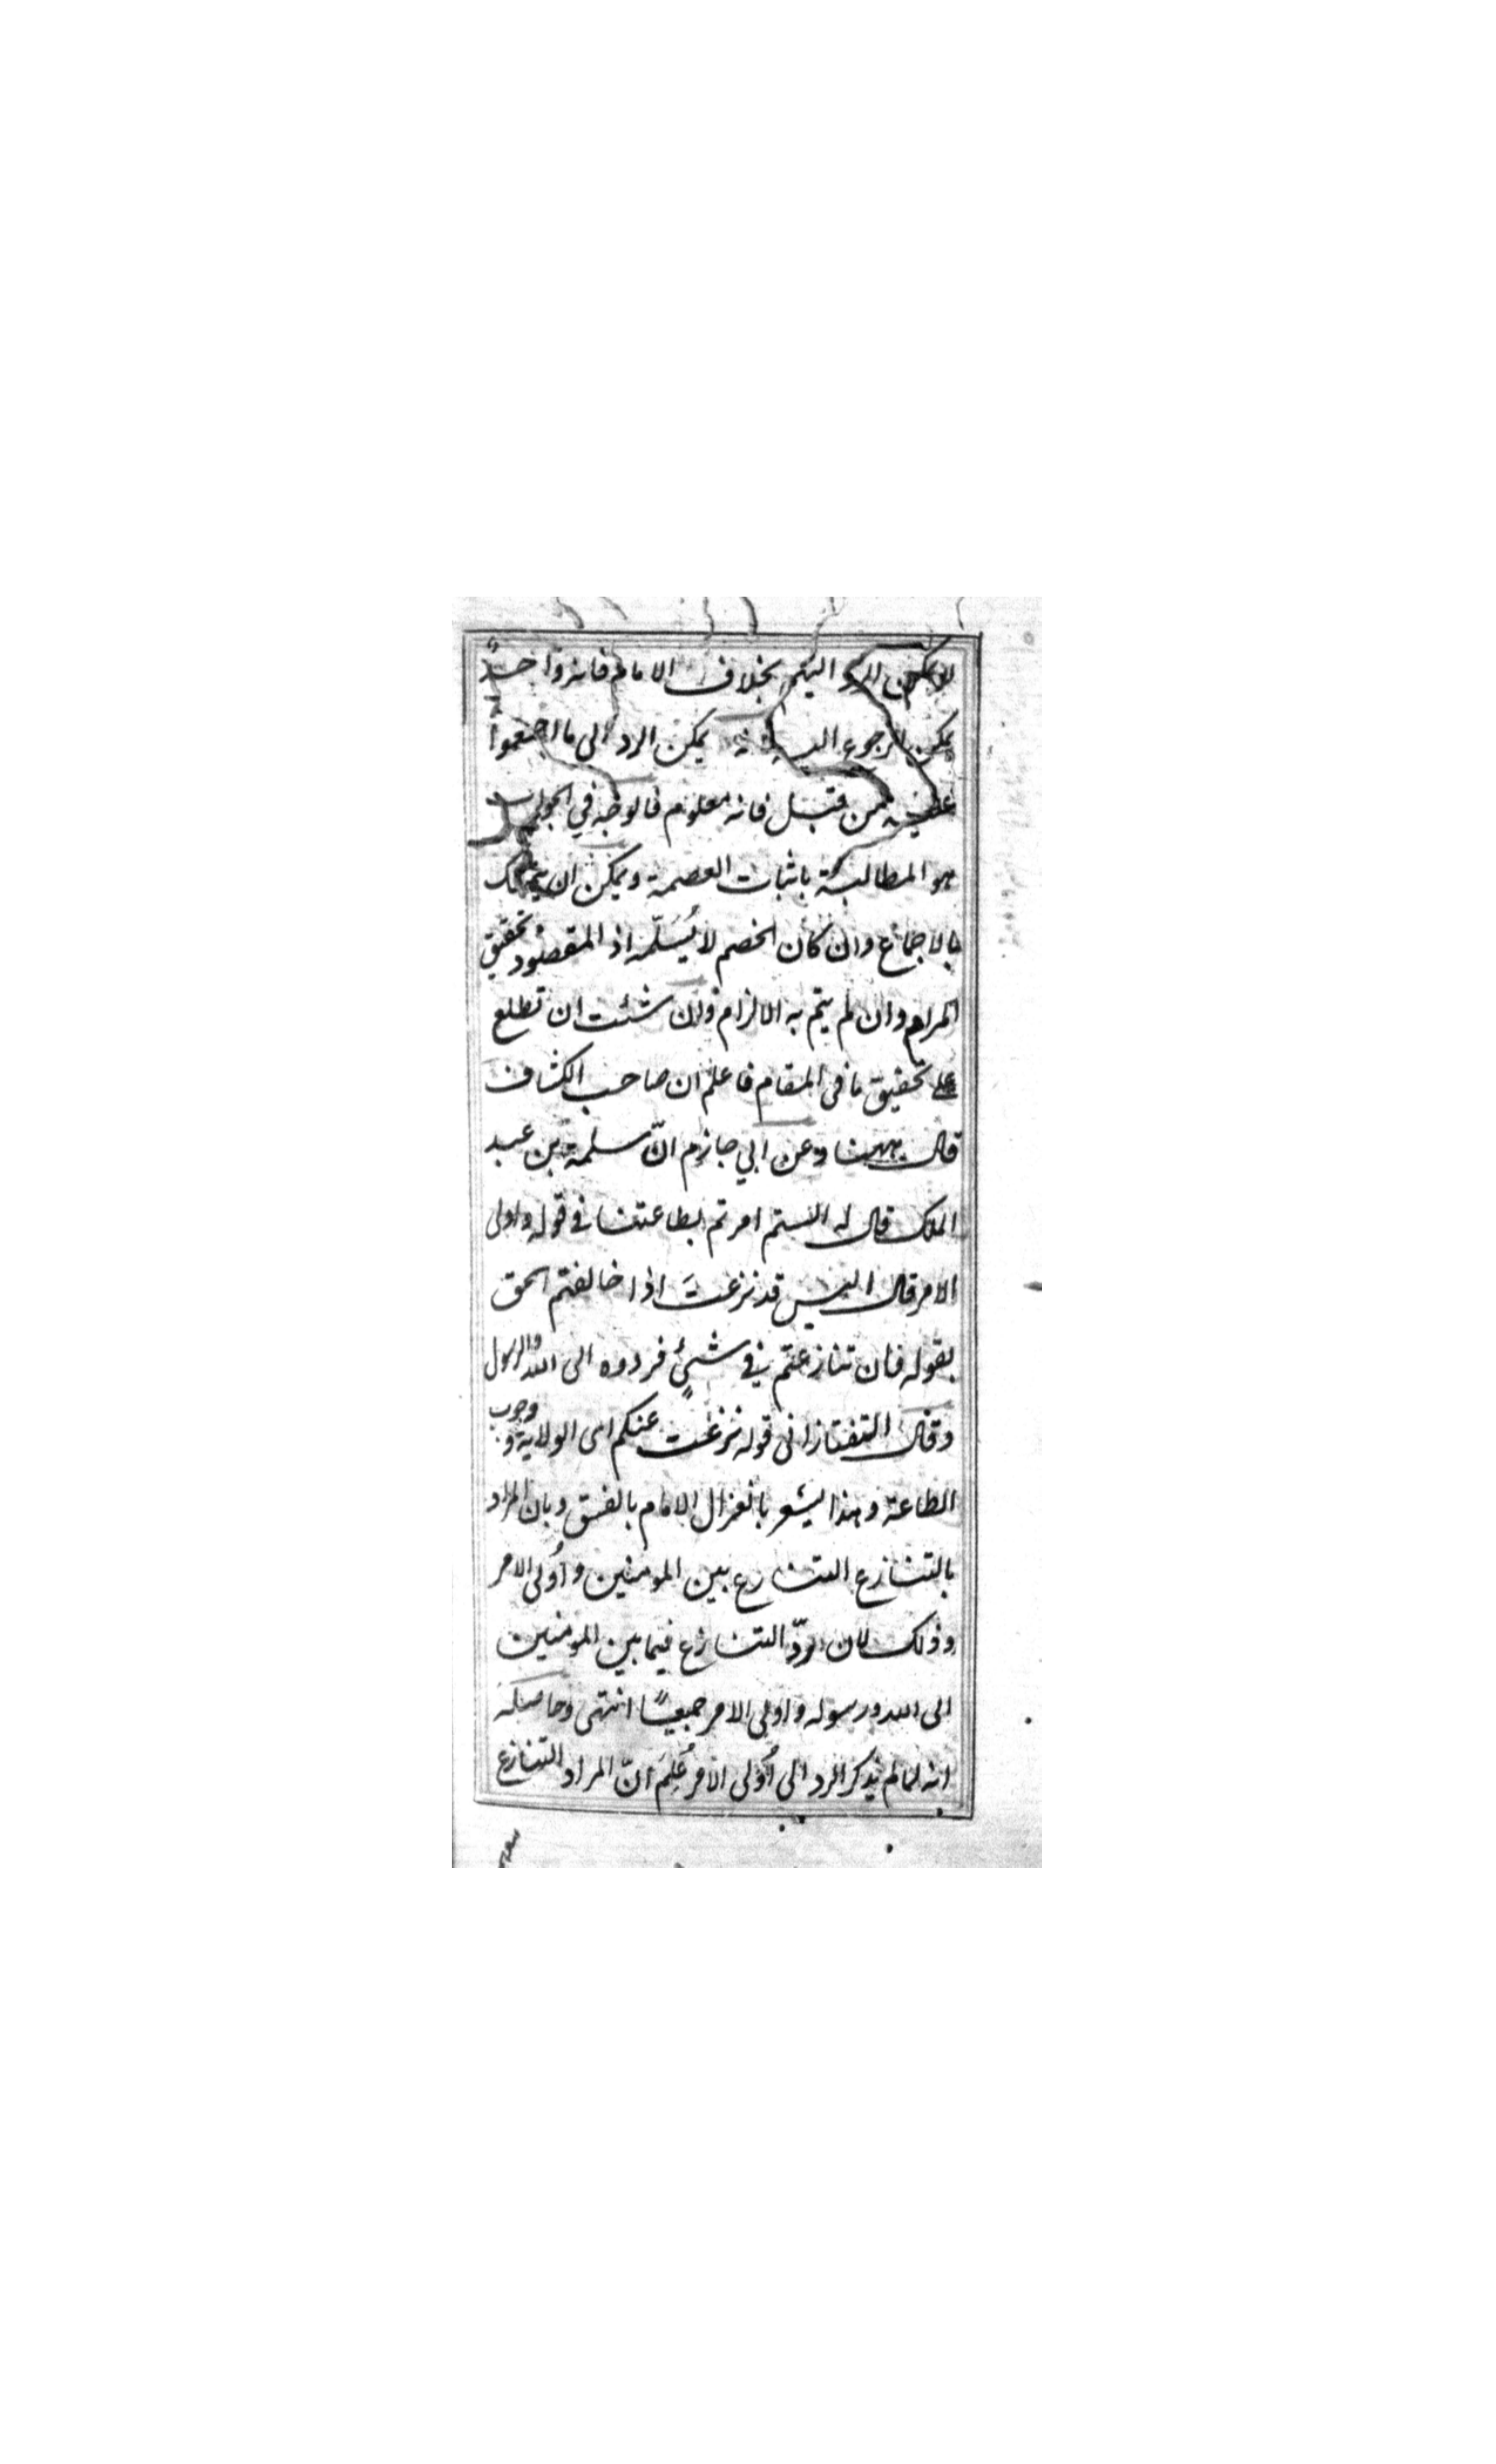 لا يمكن الرد اليهم بخلاف الامام فانه واحدٌ
يمكن الرجوع اليه يمكن الرد الى ما اجتمعوا
عليه من قبل فانه معلوم فالوجه في الجواب
هو المطالبة باثبات العصمة ويمكن ان يتمسك
بالاجماع وان كان الخصم لا يُسَلّمه اذ المقصود تحقيق
المرام وان لم يتم به الالزام وان شئت ان تطلع
على تحقيق ما في المقام فاعلم ان صاحب الكشاف
قال ههنا وعن ابي حازم انّ مسلمة بن عبد
الملك قال له الستم امرتم بطاعتنا في قوله واولى
الامر قال اليس قد نزعتَ اذا خالفتم الحق
بقوله فان تنازعتم في شيءٍ فردوه الى الله والرسول
وقال التفتازانى قوله نزعت عنكم اى الولاية و وجوب
الطاعة وهذا يشعر بانعزال الامام بالفسق وبان المراد
بالتنازع التنازع بين المومنين وأولى الامر
وذلك لان ردّ التنازع فيما بين المومنين
الى الله ورسوله واولى الامر جميعًا انتهى وحاصله
انه لما لم يذكر الرد الى أولى الامر عُلِمَ انّ المراد التنازع